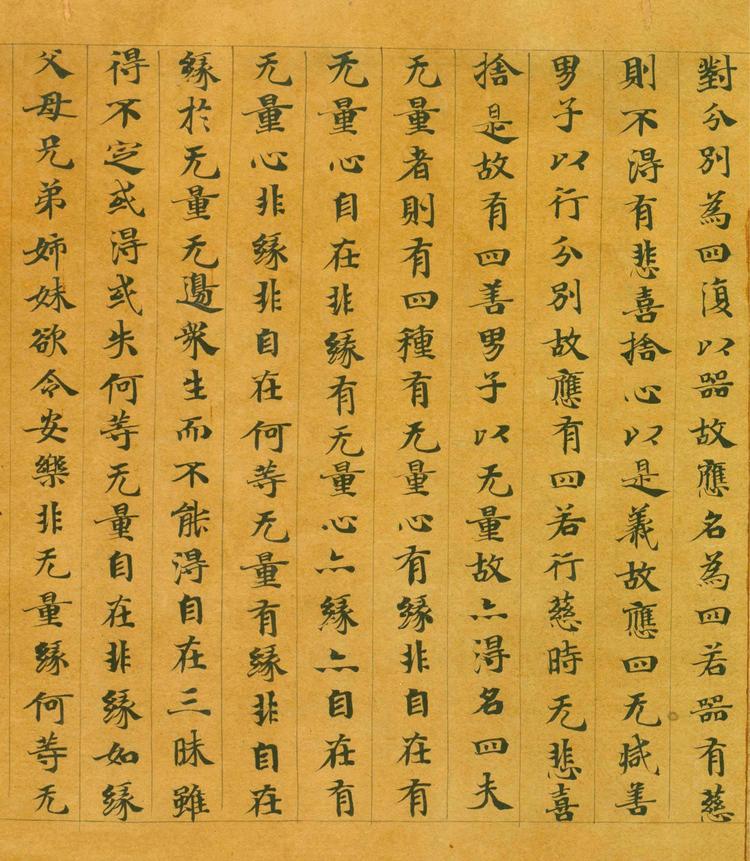 對分別為四復以器故應名為四若器有慈
則不得有悲喜捨心以是義故應四无減善
男子以行分別故應有四若行慈時无悲喜
捨是故有四善男子以无量故亦得名四夫
无量者則有四種有无量心有緣非自在有
无量心自在非緣有无量心亦緣亦自在有
无量心非緣非自在何等无量有緣非自在
緣於无量无邊衆生而不能得自在三昧雖
得不定或得或失何等无量自在非緣如緣
父母兄弟姉妹欲令安樂非无量緣何等无